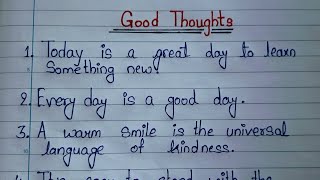 Good Thoughts
1. Today is a great day to learn
something new.
2. Every day is a good day.
3. A warm smile is the universal
language of kindness.